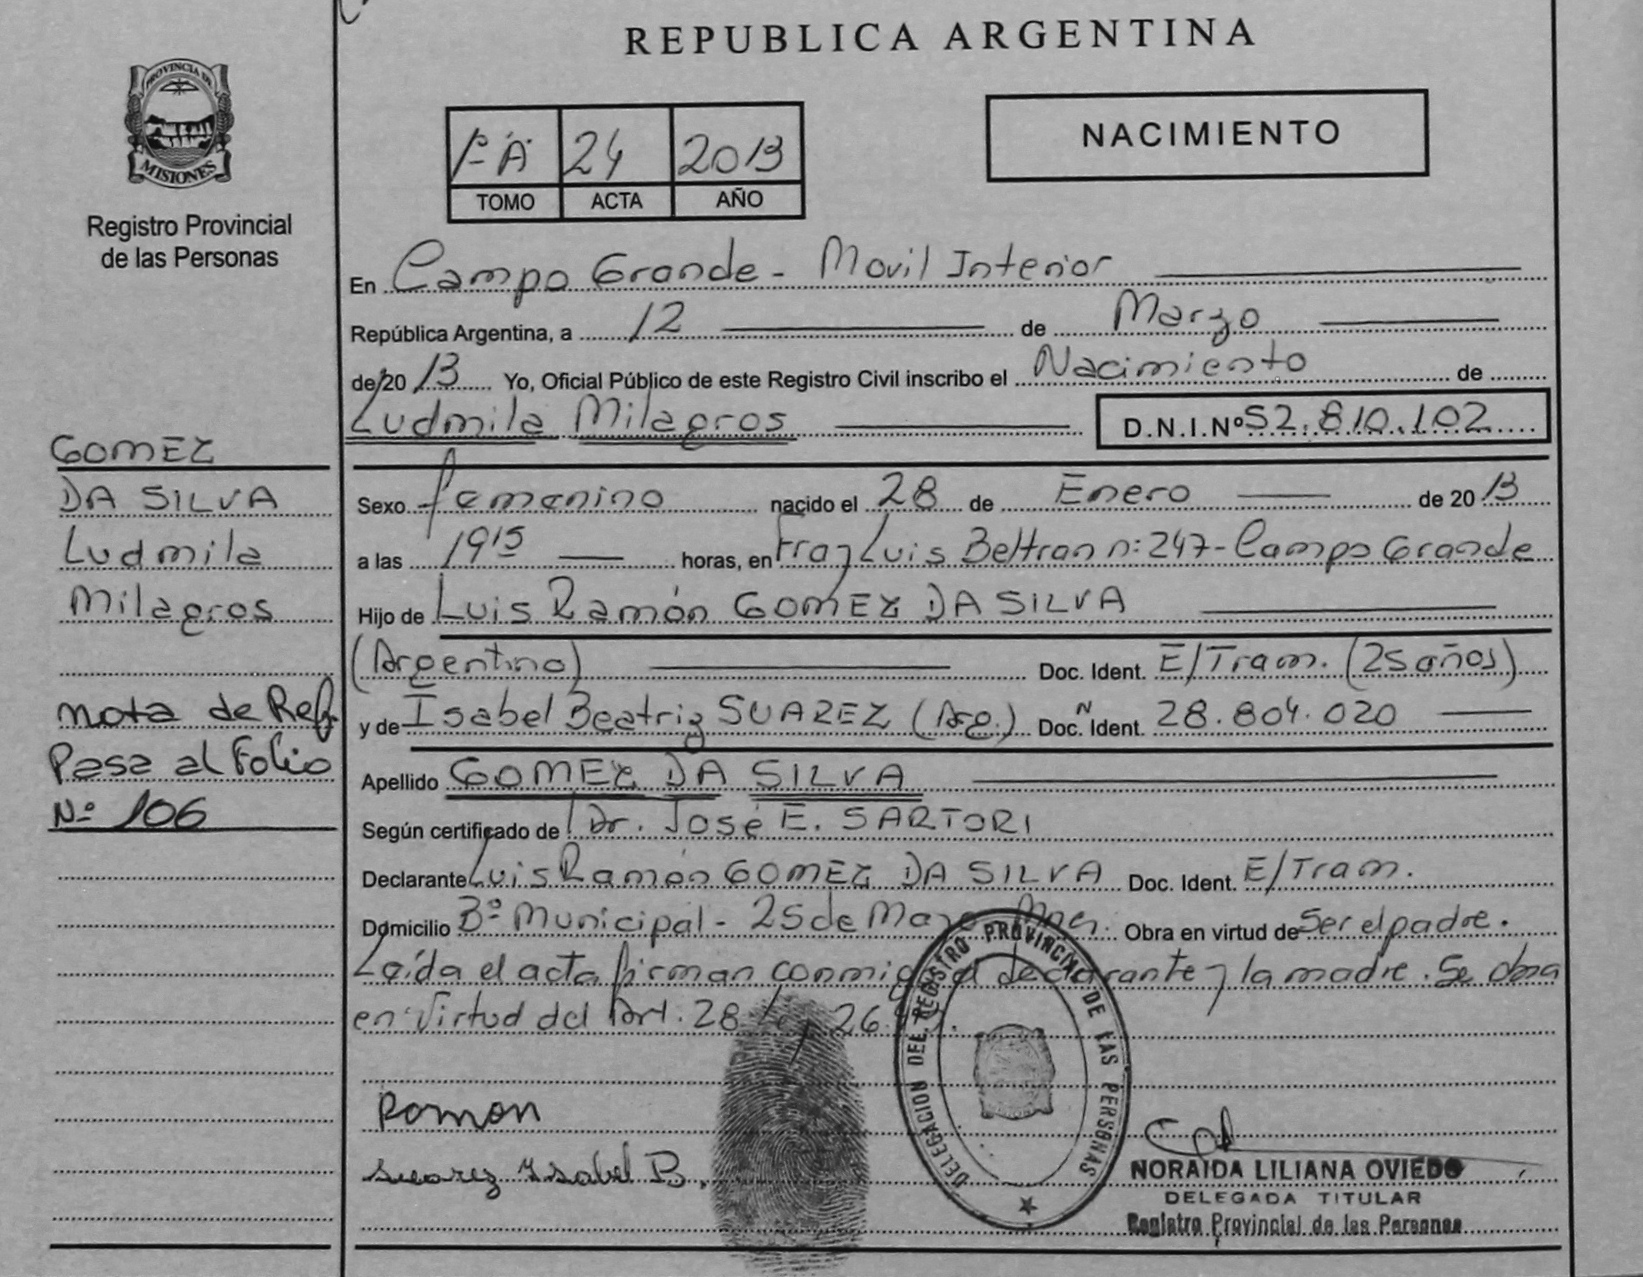 REPUBLICA ARGENTINA
PROVINCIA DE
MISIONES
Registro Provincial
de las Personas
1º A 24 2013
TOMO ACTA AÑO
NACIMIENTO
En Campo Grande - Movil Interior
República Argentina, a 12 de Marzo
de 20 13 Yo, Oficial Público de este Registro Civil inscribo el Nacimiento de
Ludmila Milagros D.N.I.Nº 52.810.102
GOMEZ
DA SILVA
Ludmila
Milagros
Nota de Ref.
Pasa al Folio
Nº 106
Sexo femenino nacido el 28 de Enero de 20 13
a las 19 15 horas, en Fray Luis Beltran nº 247 - Campo Grande
Hijo de Luis Ramón GOMEZ DA SILVA
(Argentino) Doc. Ident. E/Tram. (25 años)
y de Isabel Beatriz SUAREZ (Arg.) Doc. N Ident. 28.804.020
Apellido GOMEZ DA SILVA
Según certificado de Dr. José E. SARTORI
Declarante Luis Ramón GOMEZ DA SILVA Doc. Ident. E/Tram.
Domicilio Bº Municipal - 25 de Mayo Obra en virtud de ser el padre.
Leída el acta firman conmigo el declarante y la madre. Se obra
en virtud del Art. 28 26.
Ramon
Suarez Isabel B.
DELEGACION DEL REGISTRO PROVINCIAL DE LAS PERSONAS
NORAIDA LILIANA OVIEDO
DELEGADA TITULAR
Registro Provincial de las Personas